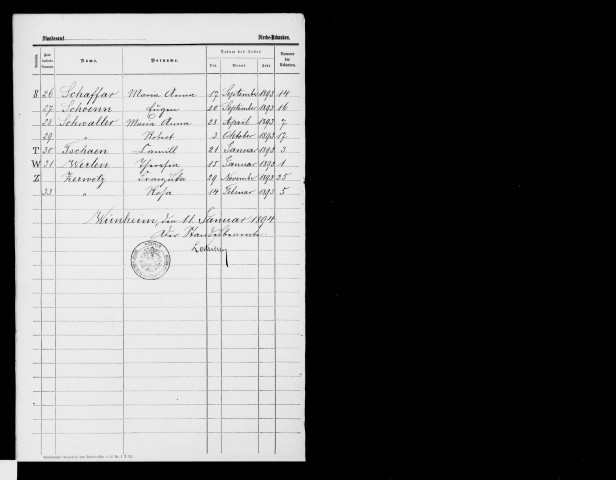 Standesamt
Name. Vorname. Datum der Tag. Monat. Jahr Nummer der Urkunden.
S 26 Schaffar Maria Anna 17 September 1893 14
27 Schoenn Eugen 20 September 1893 16
28 Schwaller Maria Anna 23 April 1893 7
29 " Robert 3 Oktober 1893 17
T 30 Tschaen Camill 21 Januar 1893 3
W 31 Werlen Theresia 15 Januar 1893 1
Z 32 Zerwetz Franziska 29 November 1893 25
33 " Rosa 14 Februar 1893 5
Wünheim, den 11. Januar 1894
Der Standesbeamte.